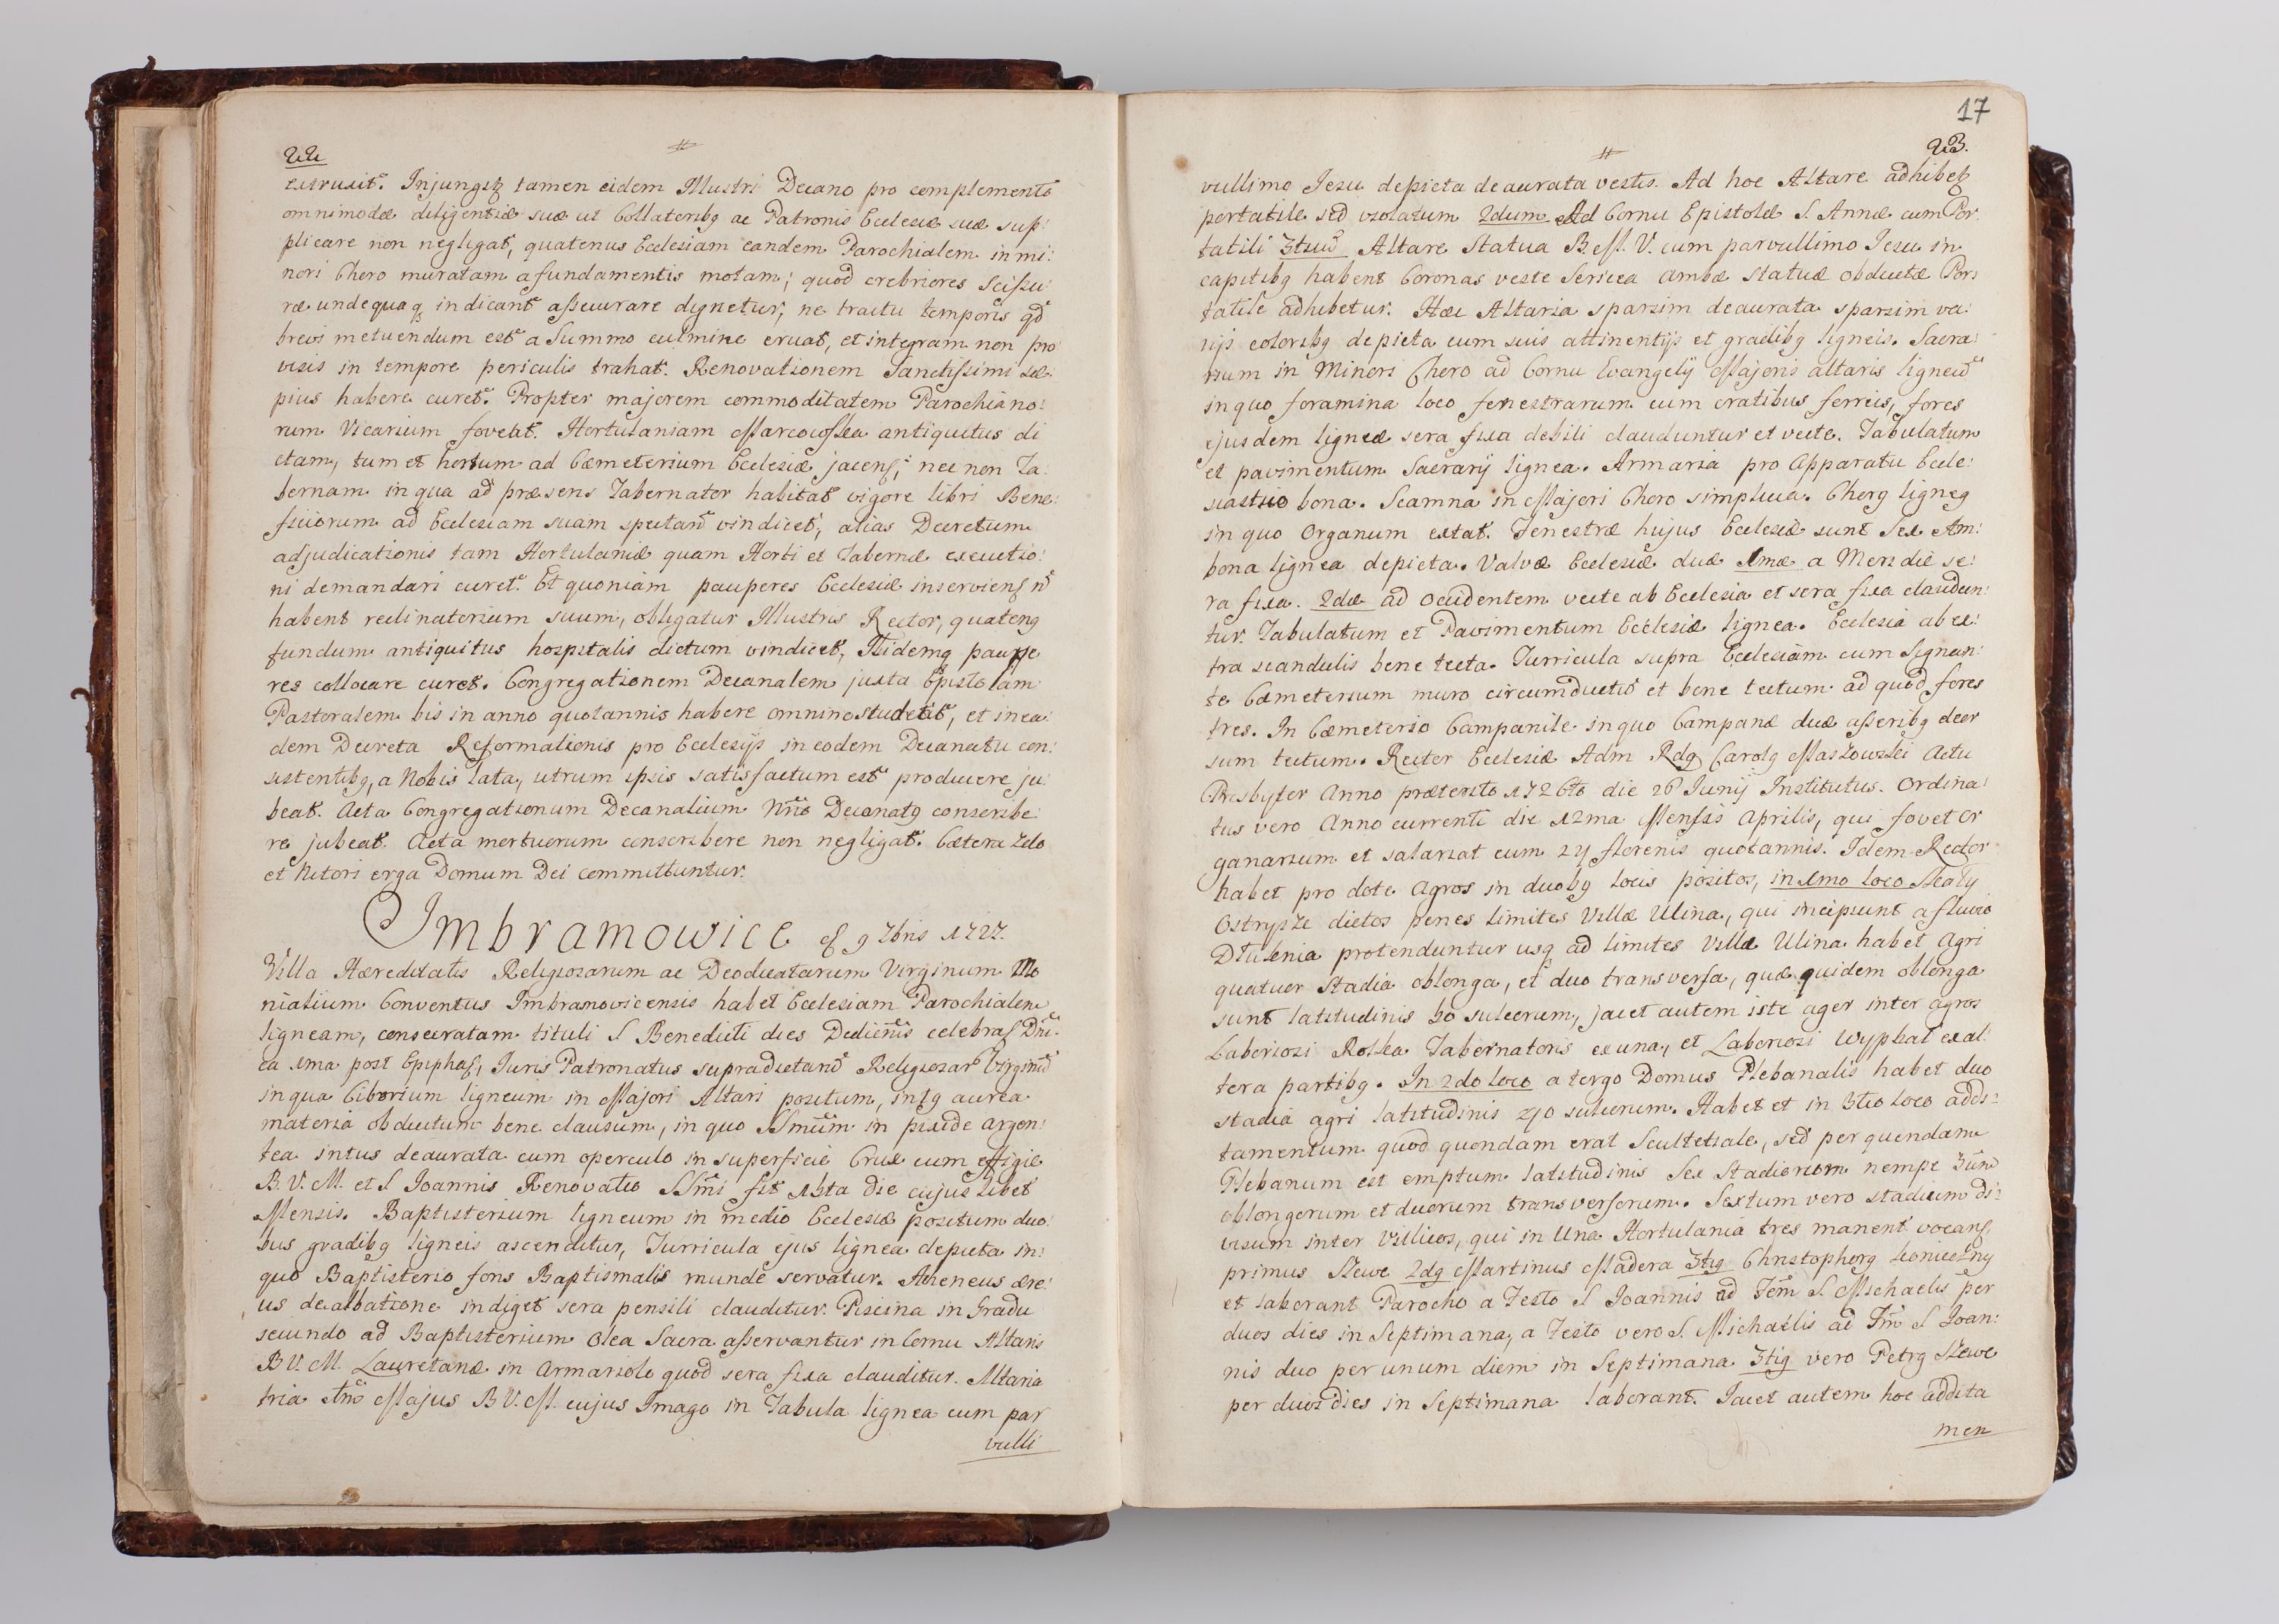 22
extruxit. Injungitꝫ tamen eidem Illustri Decano pro complemento
omnimodæ diligentiæ suæ ut Collatoribꝯ ac Patronis Ecclesiæ suæ sup:
plicare non negligat, quatenus Ecclesiam eandem Parochialem in mi:
nori Choro muratam a fundamentis motam; quod crebriores scissu:
ræ undequaqꝫ indicant assecurare dignetur, ne tractu temporis qd
brevi metuendum est a Summo culmine cruat, et integram non pro
visis in tempore periculis trahat. Renovationem Sanctissimi sæ:
pius habere curet. Propter majorem commoditatem Parochiano:
rum Vicarium foveat. Hortulaniam Marcowska antiquitus di
ctam, tum et hortum ad Cæmeterium Ecclesiæ jacens, nec non Ta:
bernam in qua ad præsens Tabernator habitat vigore libri Bene:
ficiorum ad Ecclesiam suam spectan̄ vindicet, alias Decretum
adjudicationis tam Hortulaniæ quam Horti et Tabernæ executio:
ni demandari curet. Et quoniam pauperes Ecclesiæ inservien̄ n̄
habent reclinatorium suum, obligatur Illustris Rector, quatenꝯ
fundum antiquitus hospitalis dictum vindicet, Ibidemqꝫ paupe
res collocare curet. Congregationem Decanalem juxta Epistolam
Pastoralem bis in anno quotannis habere omnino studebit, et in ea:
dem Decreta Reformationis pro Ecclesijs in eodem Decanatu con:
sistentibꝯ, a Nobis lata, utrum ipsis satisfactum est producere ju:
beat. Acta Congregationum Decanalium Nrīo Decanatꝯ conscribe:
re jubeat. Acta mortuorum conscribere non negligat. Cætera Zelo
et Nitori erga Domum Dei committuntur.
Imbramowice 9 7bris 1727.
Villa Hæreditatis Religiosarum ac Deodicatarum Virginum Mo
nialium Conventus Imbramovicensis habet Ecclesiam Parochialem
ligneam, consecratam tituli S Benedicti dies Dedicn̄is celebrat̄ Dni:
ca 1ma post Epiphaꝭ, Juris Patronatus supradictar̄ Religiosar̄ Virginū
in qua Ciborium ligneum in Majori Altari positum, intꝯ aurea
materia obductum bene clausum, in quo SSmūm in pixide argen:
tea intus deaurata cum operculo in superficie Crux cum effigie
B. V. M. et S Joannis Renovatio SSmī fit 15ta die cujus libet
Mensis. Baptisterium ligneum in medio Ecclesiæ positum duo:
bus gradibꝯ ligneis ascenditur, Turricula ejus lignea depicta in:
quo Baptisterio fons Baptismalis munde servatur. Aheneus ære:
us dealbatione indiget sera pensili clauditur. Piscina in Gradu
secundo ad Baptisterium Olea Sacra asservantur in Cornu Altaris
B V. M. Lauretanæ in Armariolo quod sera fixa clauditur. Altaria
tria 1mō Majus B V. M. cujus Imago in Tabula lignea cum par
vulli
17
23.
vullimo Jesu depicta deaurata vestis. Ad hoc Altare adhibetꝫ
portatile sed violatum 2dum Ad Cornu Epistolæ S. Annæ cum Por:
tatili 3tiū Altare Statua B. M. V. cum parvullimo Jesu in
capitibꝯ habent Coronas veste sericea ambæ statuæ obductæ Por:
tatile adhibetur. Hæc Altaria sparsim deaurata sparsim va:
rijs coloribꝯ depicta cum suis attinentijs et gradibꝯ ligneis. Sacra:
rium in Minori Choro ad Cornu Evangelij Majoris altaris ligneū
in quo foramina loco fenestrarum cum cratibus ferreis, fores
ejusdem ligneæ sera fixa debili clauduntur et vecte. Tabulatum
et pavimentum Sacrarij lignea. Armaria pro Apparatu Eccle:
siastico bona. Scamna in Majori Choro simplicia. Chorꝯ ligneꝯ
in quo Organum extat. Fenestræ hujus Ecclesiæ sunt Sex Am:
bona lignea depicta. Valvæ Ecclesiæ duæ 1mæ a Meridie se:
ra fixa. 2dæ ad Occidentem vecte ab Ecclesia et sera fixa claudun:
tur. Tabulatum et Pavimentum Ecclesiæ lignea. Ecclesia ab ex:
tra scandulis bene tecta. Turricula supra Ecclesiam cum Signan:
te Cæmeterium muro circumductū et bene tectum ad quod fores
tres. In Cæmeterio Campanile in quo Campanæ duæ asseribꝯ deor
sum tectum. Rector Ecclesiæ Adm Rdꝯ Carolꝯ Maszowski Actu
Presbyter Anno præterito 1726to die 26 Junij Institutus. Ordina:
tus vero Anno currenti die 12ma Mensis Aprilis, qui fovet or
ganarium et salariat eum 24 florenis quotannis. Idem Rector
habet pro dote Agros in duobꝯ locis positos, in 1mo loco Skały
Ostrysze dictos penes limites Villæ Ulina, qui incipiunt a fluvio
Dłubnia protenduntur usqꝫ ad limites Villæ Ulina habet Agri
quatuor Stadia oblonga, et duo transversa, quæ quidem oblonga
sunt latitudinis 60 sulcorum, jacet autem iste ager inter agros
Laboriosi Rolka Tabernatoris ex una, et Laboriosi Wypchał ex al:
tera partibꝯ. In 2do loco a tergo Domus Plebanalis habet duo
stadia agri latitudinis 240 sulcorum. Habet et in 3tio loco addi:
tamentum quod quondam erat Scultetiale, sed per quendam
Plebanum est emptum latitudinis Sex Stadiorum nempe 3ūm
oblongorum et duorum transversorum. Sextum vero stadium di:
visum inter Villicos, qui in Una Hortulania tres manent vocanꝭ
primus Szewc 2dꝯ Martinus Madera 3tiꝯ Christophorꝯ Koniczny
et laborant Parocho a Festo S Joannis ad Fēm S. Michaelis per
duos dies in Septimana, a Festo vero S. Michaelis ad Fm̄ S Joan:
nis duo per unum diem in Septimana 3tiꝯ vero Petrꝯ Szewc
per duos dies in Septimana laborant. Jacet autem hoc addita
men